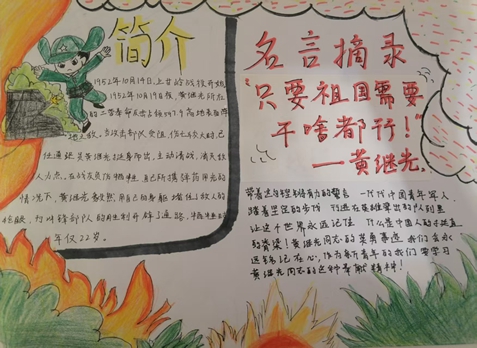 简介
1952年10月19日,上甘岭战役开始
1952年10月19日夜,黄继光所在
的二营奉命反击占领597.9高地表面阵
地之敌。当攻击部队受阻,伤亡较大时,已
任通讯员黄继光挺身而出,主动请战,消灭敌
人火力点。在战友负伤牺牲,自己所携弹药用光的
情况下,黄继光毅然用自己的身躯堵住了敌人的
枪眼,为冲锋部队的胜利开辟了通路,牺牲时
年仅22岁。
名言摘录
"只要祖国需要
干啥都行!"
—黄继光.
带着这句铿锵有力的誓言 一代代中国青年军人
踏着坚定的步伐 行进在英雄辈出的队列里
让这个世界永远记住 什么是中国人的挺直
的脊梁!黄继光同志的英勇事迹 我们会永
远铭记在心,作为新青年的我们要学习
黄继光同志的这种奉献精神!